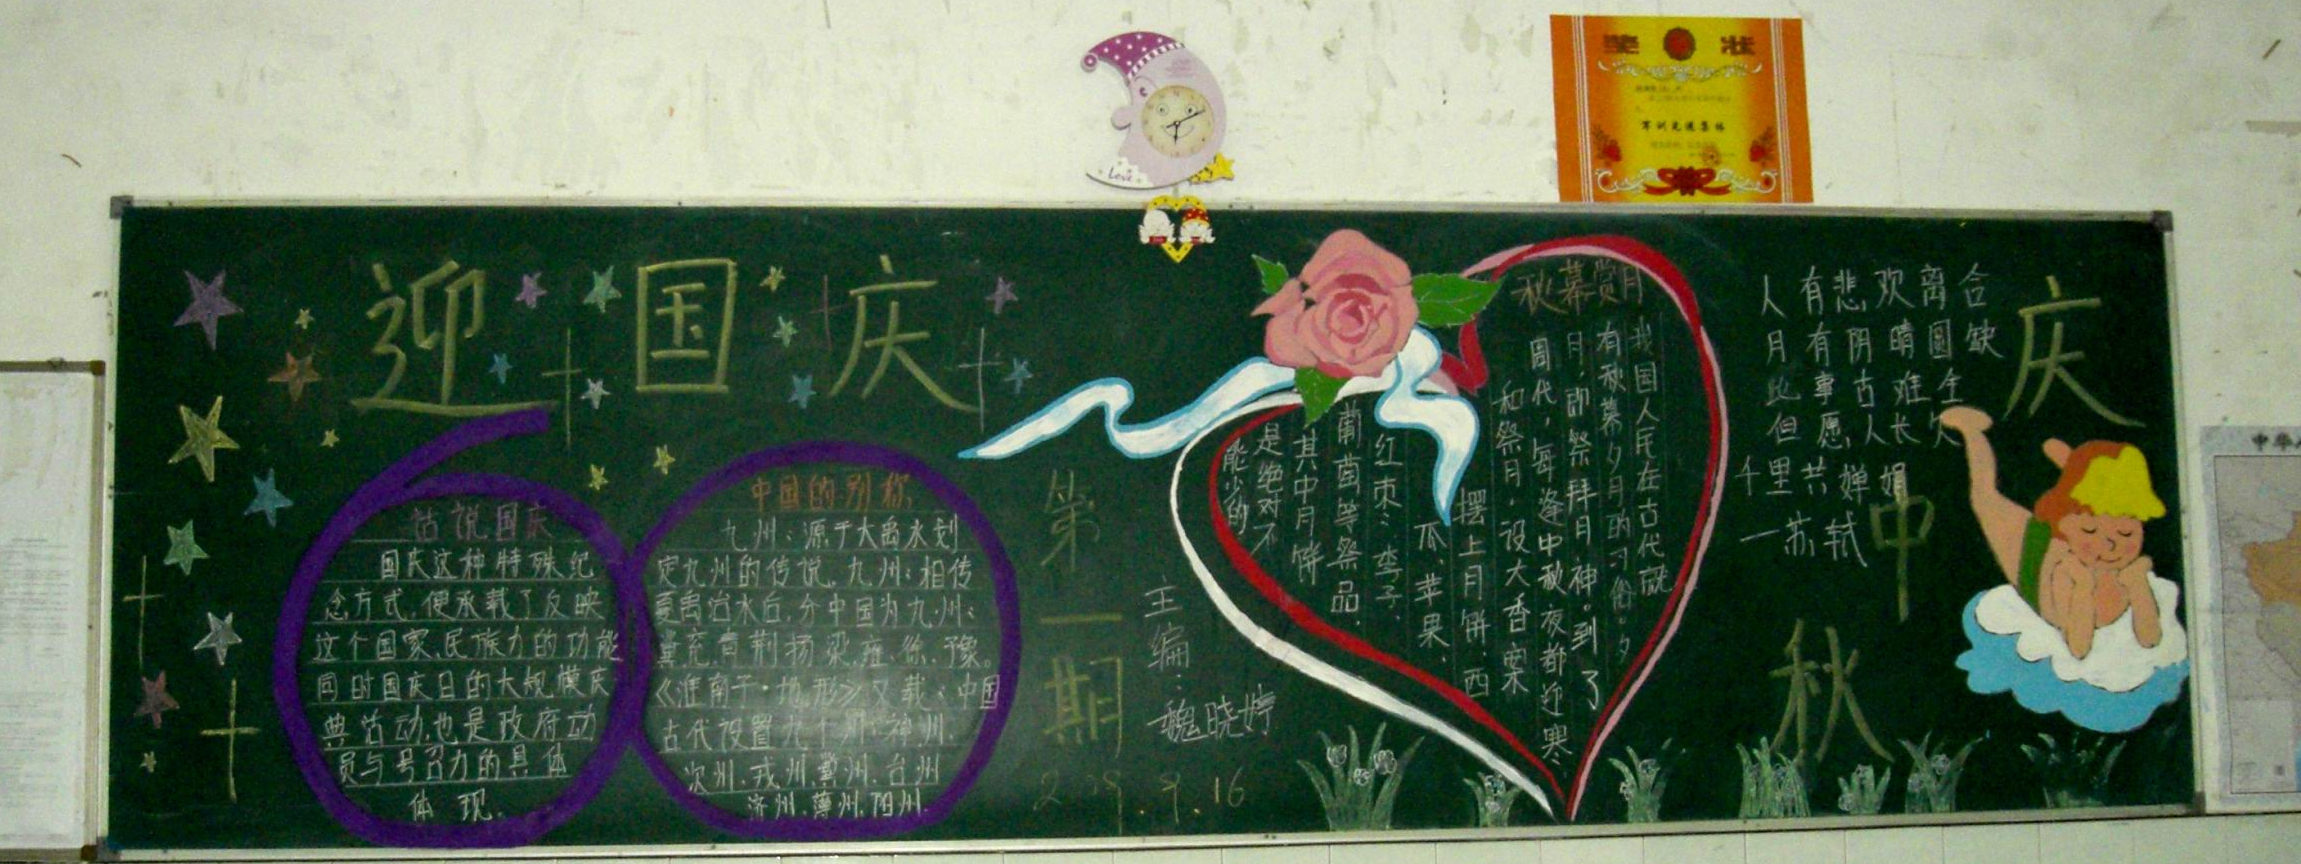 奖状
军训先进集体
Love
迎国庆
话说国庆
国庆这种特殊纪
念方式,便承载了反映
这个国家、民族力的功能
同时国庆日的大规模庆
典活动,也是政府动
员与号召力的具体
体现.
中国的别称
九州:源于大禹水划
定九州的传说.九州:相传
夏禹治水后,分中国为九州:
冀.兖.青.荆.扬.梁.雍.徐.豫。
《淮南子·地形》又载:中国
古代设置九个州:神州.
次州.戎州.冀州.台州
济州.薄州.阳州.
第一期
主编:魏晓婷
2009.9.16
秋暮赏月
我国人民在古代就
有秋暮夕月的习俗。夕
月,即祭拜月神。到了
周代,每逢中秋夜都迎寒
和祭月。设大香案
摆上月饼、西
瓜、苹果、
红枣、李子、
葡萄等祭品.
其中月饼
是绝对不
能少的
人有悲欢离合
月有阴晴圆缺
此事古难全
但愿人长久
千里共婵娟
一苏轼
庆中秋
中华